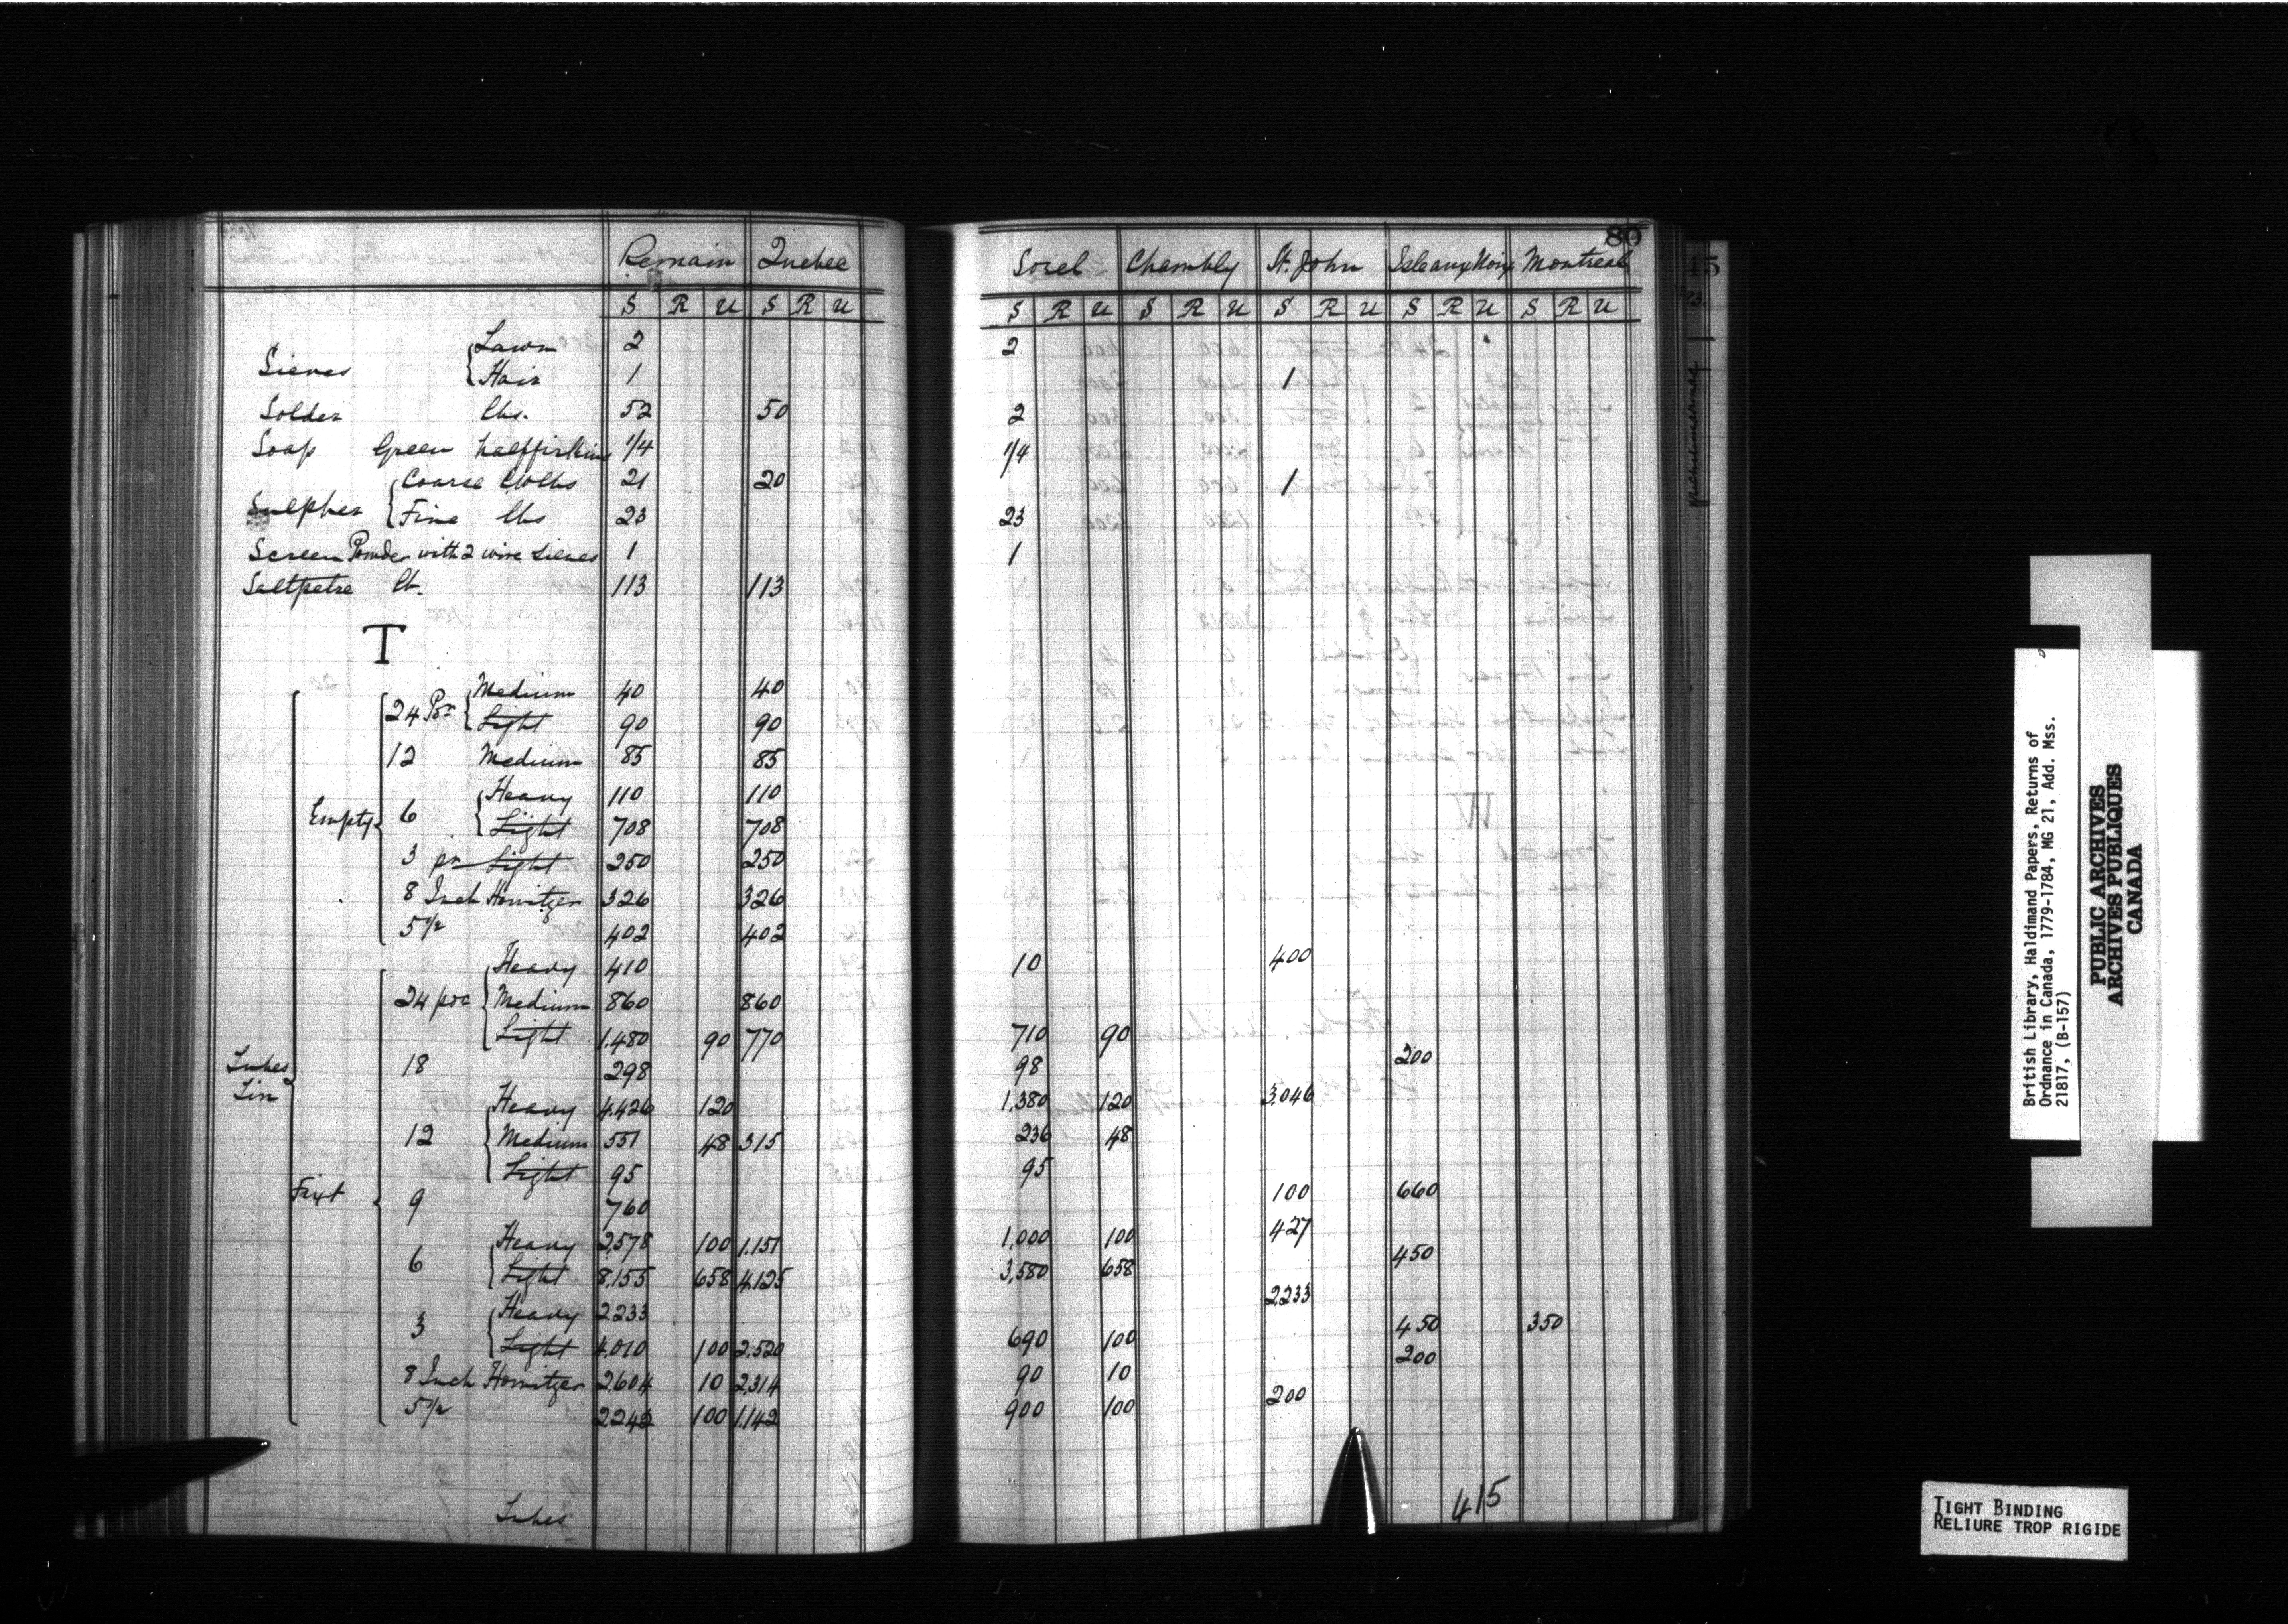 80
Remain Quebec Sorel Chambly St. John Isle aux Noix Montreal
S R U S R U S R U S R U S R U S R U S R U
Sieves { Lawn 2 2
{ Hair 1 1
Solder lbs. 52 50 2
Soap Green halffirkins 1/4 1/4
Sulpher { Coarse Clolbs 21 20 1
{ Fine lbs 23 23
Screen Powder with 2 wire Sieves 1 1
Saltpetre lb. 113 113
T
24 Pr { Medium 40 40
{ Light 90 90
12 Medium 85 85
Empty 6 { Heavy 110 110
{ Light 708 708
3 pr Light 250 250
8 Inch Howitzer 326 326
5 1/2 402 402
24 por { Heavy 410 10 400
{ Medium 860 860
{ Light 1.480 90 770 710 90
Tubes Tin
18 298 98 200
12 { Heavy 4.426 120 1.380 120 3,046
{ Medium 551 48 315 236 48
{ Light 95 95
Fixt 9 760 100 660
6 { Heavy 2,578 100 1.151 1,000 100 427
{ Light 8,155 658 4,125 3,580 658 450
3 { Heavy 2233 2233
{ Light 4.010 100 2.520 690 100 450 350
8 Inch Howitzer 2,604 10 2,314 90 10 200
5 1/2 2,242 100 1.142 900 100 200
Tubes
415
British Library, Haldimand Papers, Returns of
Ordnance in Canada, 1779-1784, MG 21, Add. Mss.
21817, (B-157)
PUBLIC ARCHIVES
ARCHIVES PUBLIQUES
CANADA
TIGHT BINDING
RELIURE TROP RIGIDE